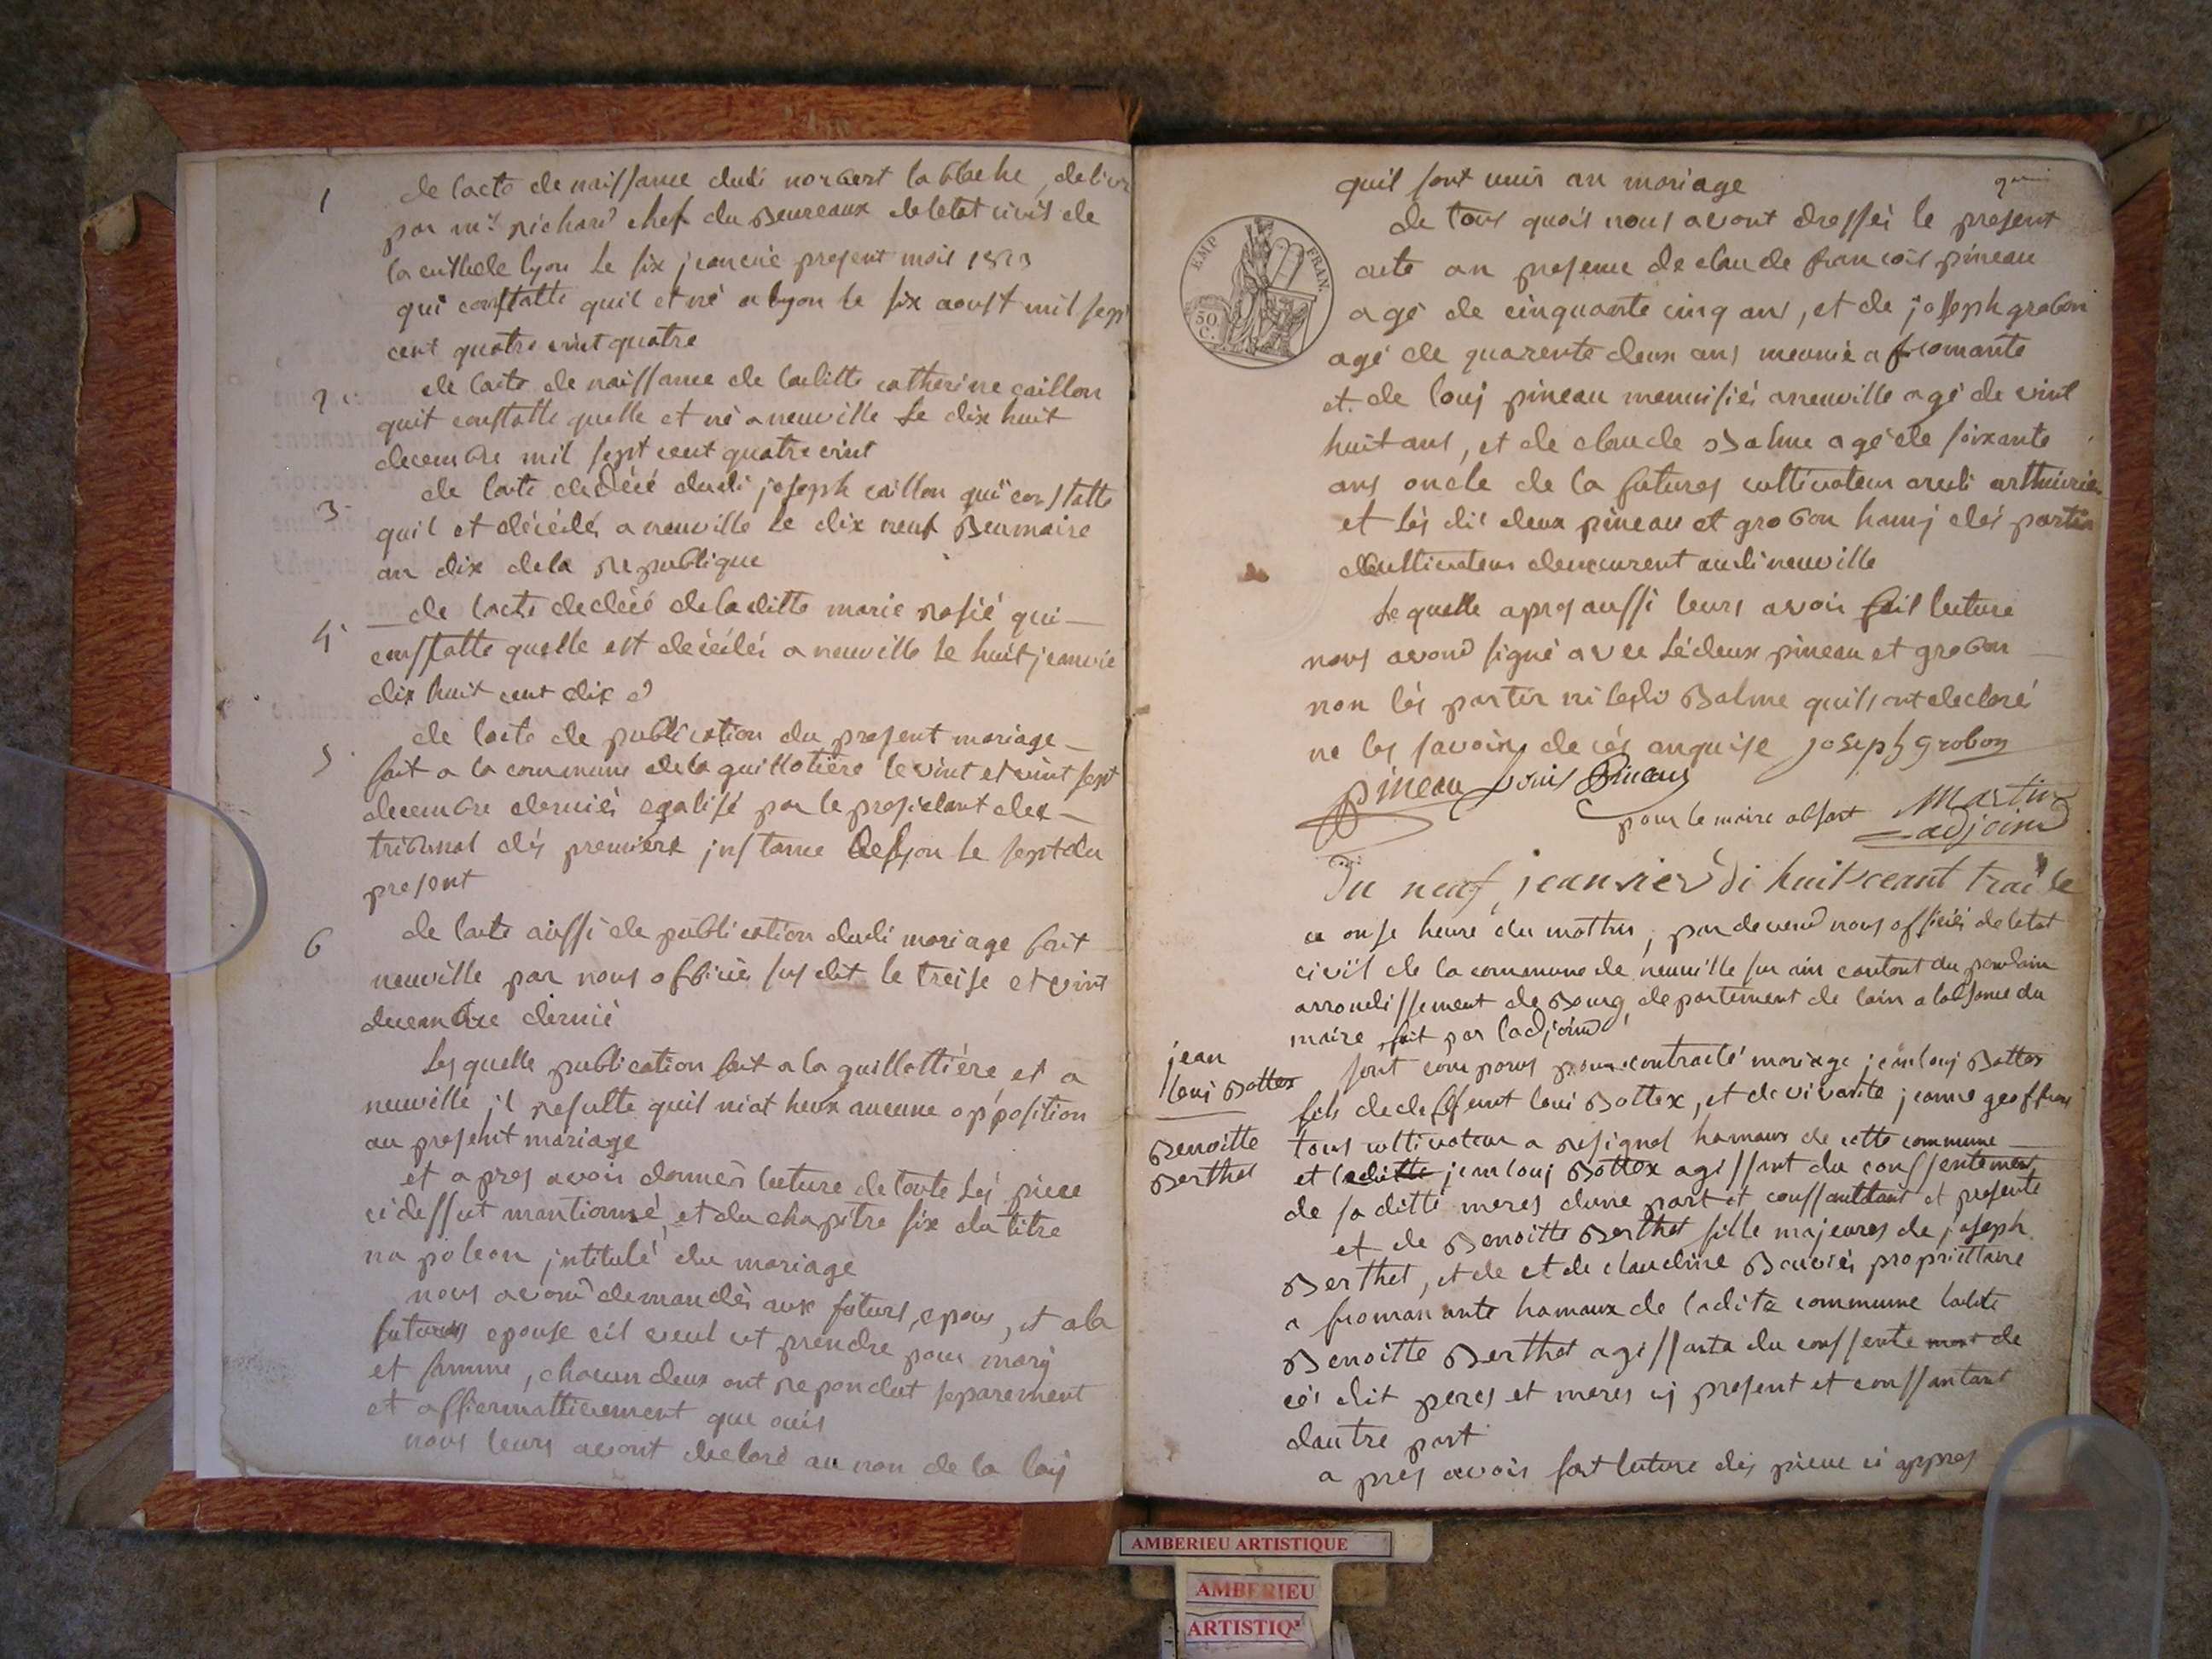 1 de lacte de naissance dudi norbert la blache, delivr
par mr. richard chef du Beureaux de letat civil de
la ville de lyon Le six jeanvié present mois 1813
qui constatte quil et né a lyon le six aoust mil sept
cent quatre vint quatre
2 de lacte de naissance de laditte catherine caillon
quit constatte quelle et né a neuville Le dix huit
decembre mil sept cent quatre vint
3 de lacte dedécé dudi joseph caillon qui constatte
quil et décédés a neuville Le dix neuf Beumaire
an dix dela republique
4 de lacte dedécé deladitte marie rosié qui
constatte quelle est décédés a neuville Le huit jeanvié
dix huit cent dix
5 de lacte de publication du present mariage
fait a la commune dela guillotiere le vint et vint sept
decembre derniés egalisé par le presidant der
tribunal dés premiere jnstance de lyon Le sept du
present
6 de lacte aussi de publication dudi mariage fait
neuville par nous officiés sus dit le treise et vint
decembre dernié
Les quelle publication fait a la guillottiére et a
neuville jl resulte quil niat heux aucune opposition
au present mariage
et a pres avoir donnér lecture de toute Les piece
ci dessut mantionné, et du chapitre six du titre
na poleon jntitulé du mariage
nous avont demandés aux futurs epous, et a la
futures epouse cil veul ut prendre pour mary
et famme, chacun deux ont repondut separement
et affiermattivement que ouis
nous leurs avont declaré au non de la loij
quil sont unis an mariage
de tous quois nous avont dressés le present
EMP FRAN.
50 C.
acte an presence de claude francois pineau
agé de cinquante cinq ans, et de joseph grobon
agé de quarente deux ans meunié a fromante
et de louj pineau menuisiés aneuville agé de vint
huit ans, et de claude Balme agé de soixante
ans oncle de la futures cultivateur audi
et Lés dit deux pineau et grobon hamj dés partis
cultivateur demeurent audi neuville
Le quelle apres aussi leurs avoir fait lecture
nous avond signé avec Lé deux pineau et grobon
non lés partis ni ledi Balme quils ont declaré
ne les savoir de cés anquise joseph grobon
pineau Louis Pineau
pour le maire absant Martin
adjoind
Du neuf jeanvier di huit ceant traise
a onse heure du mattin, par devend nous officiés de letat
civil de la commune de neuville sur ain cantont du pondain
arrondissement de Bourg, departement de lain a labsance du
maire fait par ladjoind
jean
loui Bottex
Benoitte
Berthet
sont comparus pour contracté mariage jeanlouj Bottex
fils de deffeunt loui Bottex, et de vivante jeanne geoffray
tous cultivateur a resignel hamaux de cette commune
et ledite jeanlouj Bottex agissant du conssentement
de sa ditte meres dune part et conssanttant et presente
et de Benoitte Berthet fille majeures de joseph
Berthet, et de et de claudine Bouvier propriettaire
a fromanante hamaux de ladite commune ladite
Benoitte Berthet agissante du conssente ment de
cés dit peres et meres cij present et conssantant
dautre part
a prés avoir fait lecture dés piece ci appres
AMBERIEU ARTISTIQUE
AMBERIEU
ARTISTIQ